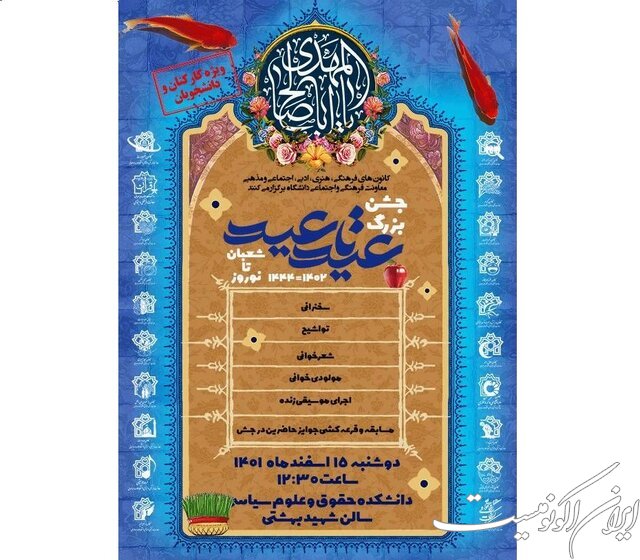 المهدی
یا اباصالح
ویژه کارکنان و
دانشجویان
کانون‌های فرهنگی، هنری، ادبی، اجتماعی و مذهبی
معاونت فرهنگی و اجتماعی دانشگاه برگزار می‌کنند
جشن
بزرگ
عید تا عید
شعبان
تا
نوروز
۱۴۴۴=۱۴۰۲
سخنرانی
تواشیح
شعرخوانی
مولودی خوانی
اجرای موسیقی زنده
مسابقه و قرعه کشی جوایز حاضرین در جشن
دوشنبه ۱۵ اسفندماه ۱۴۰۱
ساعت ۱۲:۳۰
دانشکده حقوق و علوم سیاسی
سالن شهید بهشتی
ایران اکونومیست